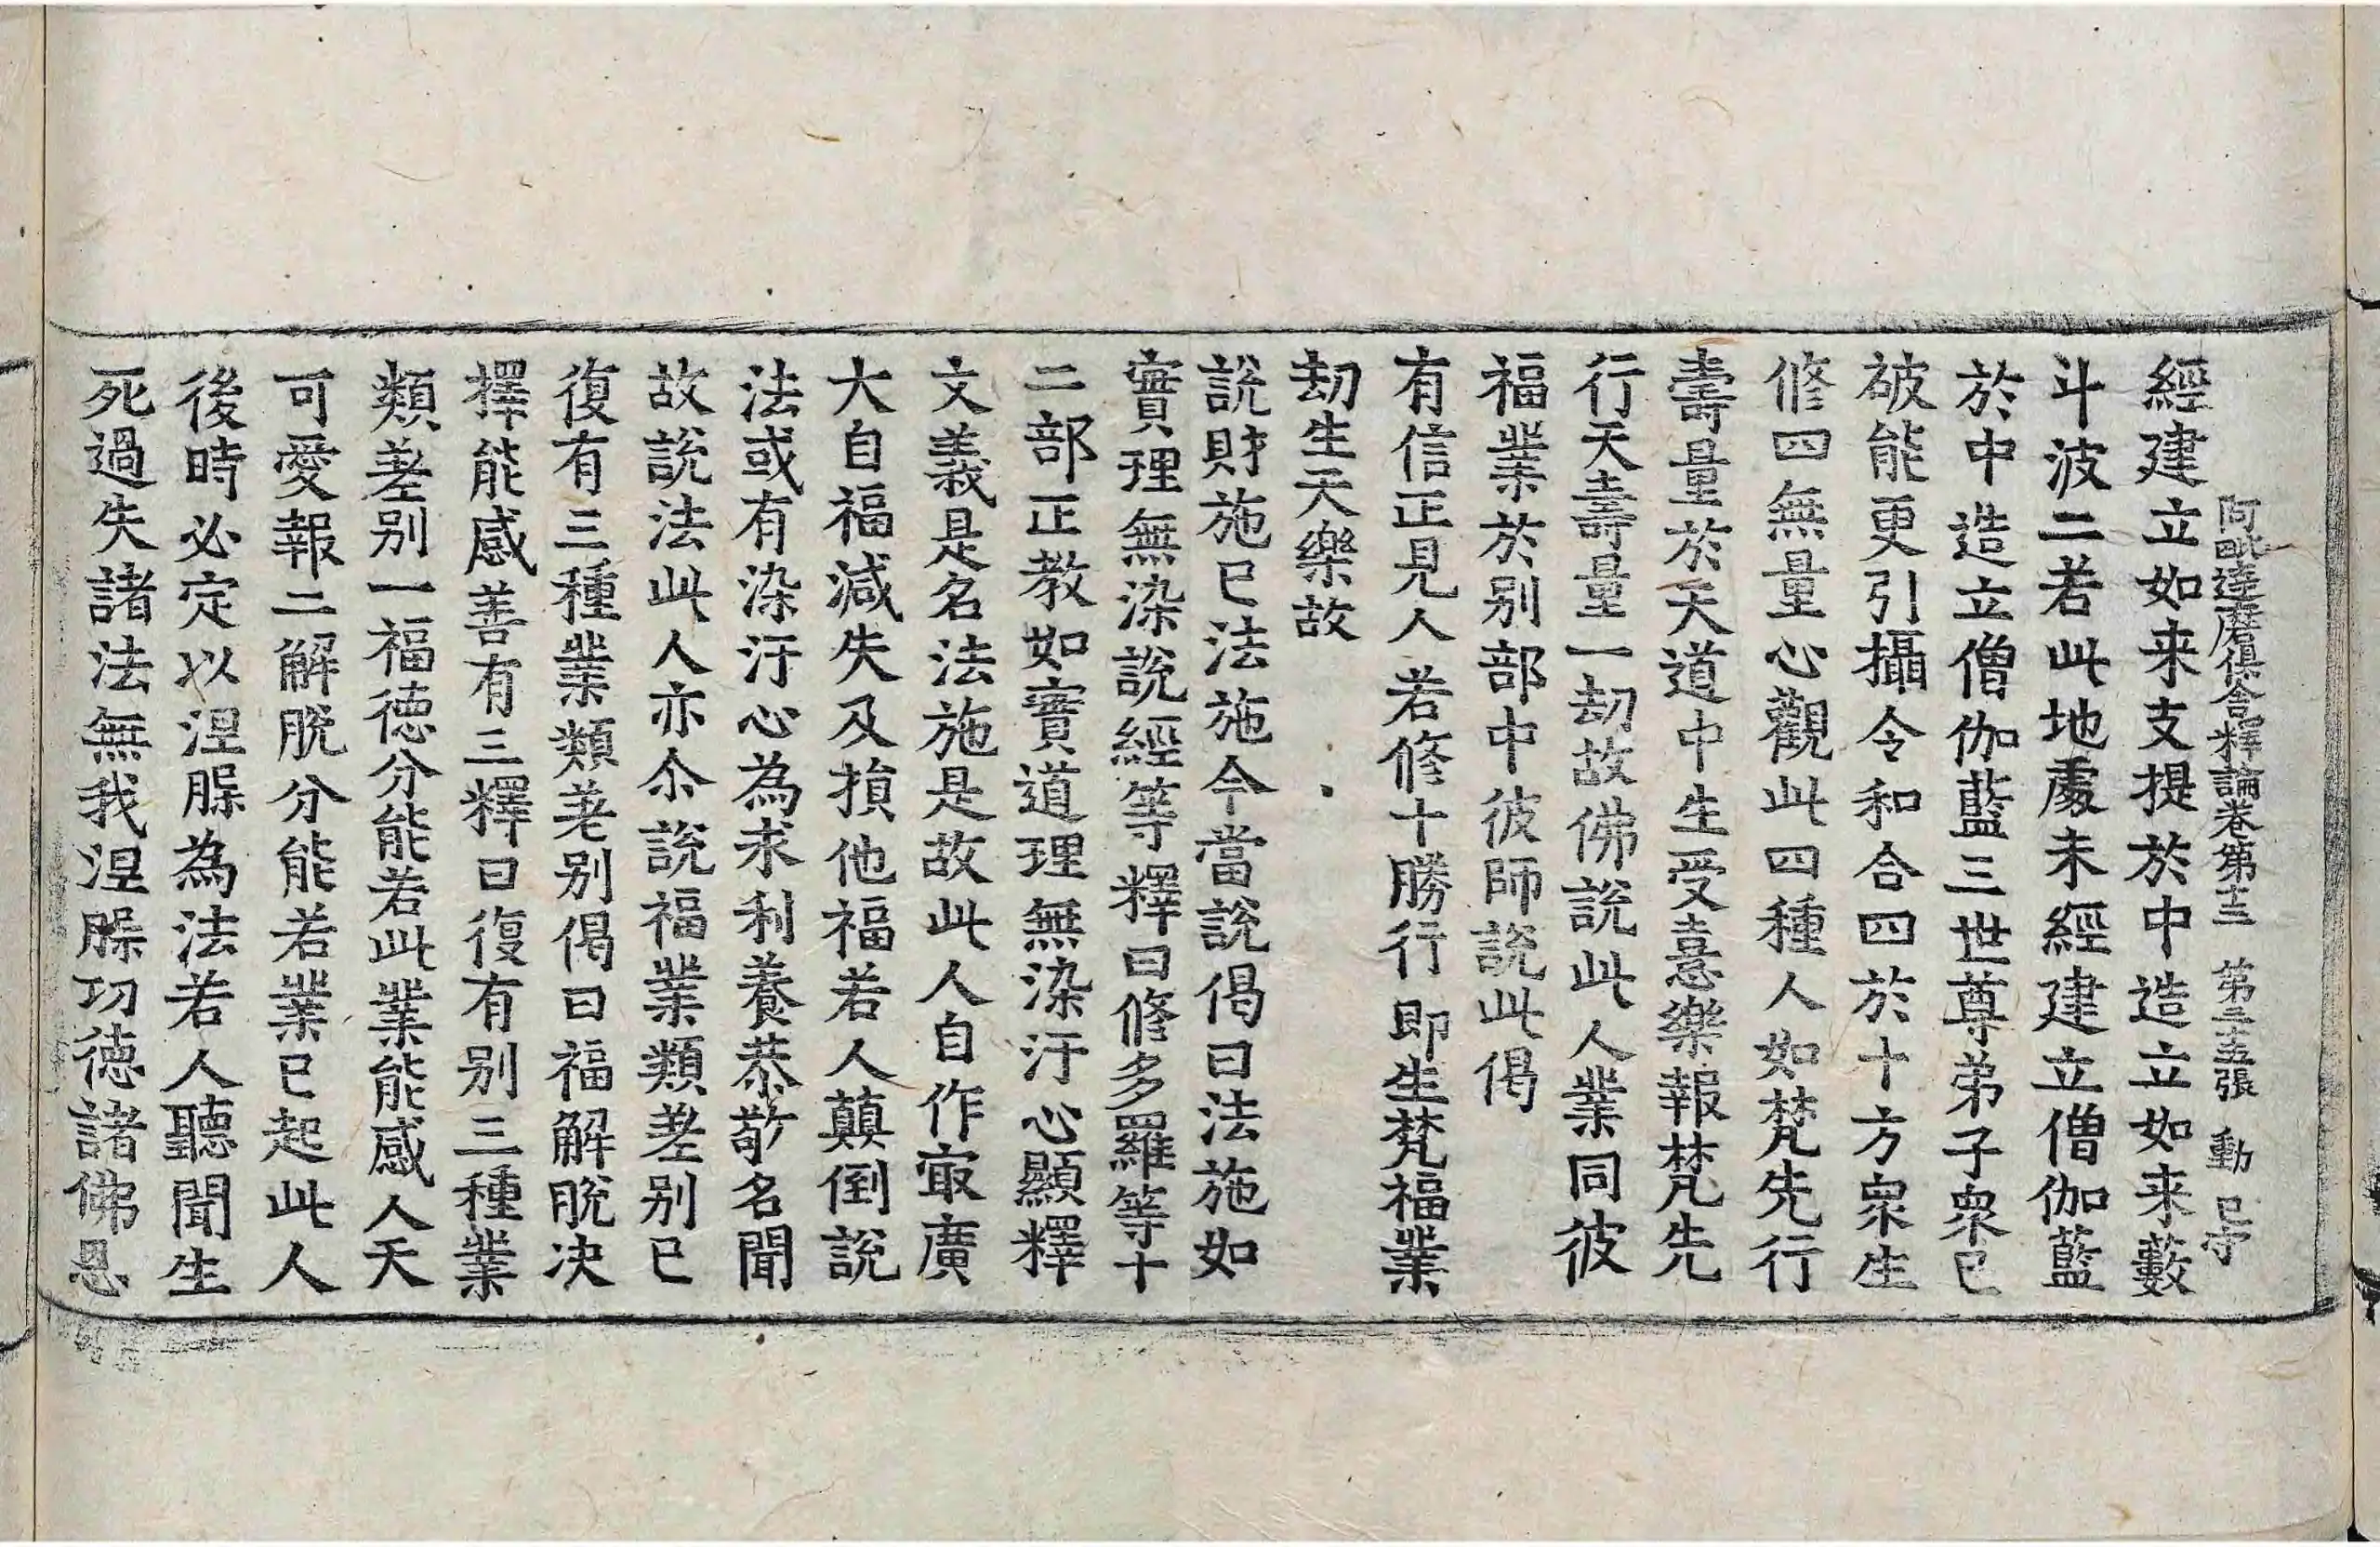 經建立如来支提於中造立如来藪
阿毗達磨俱舍釋論卷第十三 第三十五張 動 已守
斗波二若此地處未經建立僧伽藍
於中造立僧伽藍三世尊弟子衆已
破能更引攝令和合四於十方衆生
修四無量心觀此四種人如梵先行
壽量於天道中生受憙樂報梵先
行天壽量一劫故佛說此人業同彼
福業於別部中彼師說此偈
有信正見人 若修十勝行 即生梵福業
劫生天樂故
說財施已法施今當說偈曰法施如
實理無染說經等釋曰修多羅等十
二部正教如實道理無染汙心顯釋
文義是名法施是故此人自作㝡廣
大自福減失及損他福若人顛倒說
法或有染汙心為求利養恭敬名聞
故說法此人亦尒說福業類差別已
復有三種業類差別偈曰福解脫决
擇能感善有三釋曰復有別三種業
類差別一福德分能若此業能感人天
可愛報二解脫分能若業已起此人
後時必定以涅槃為法若人聽聞生
死過失諸法無我涅槃功德諸佛恩